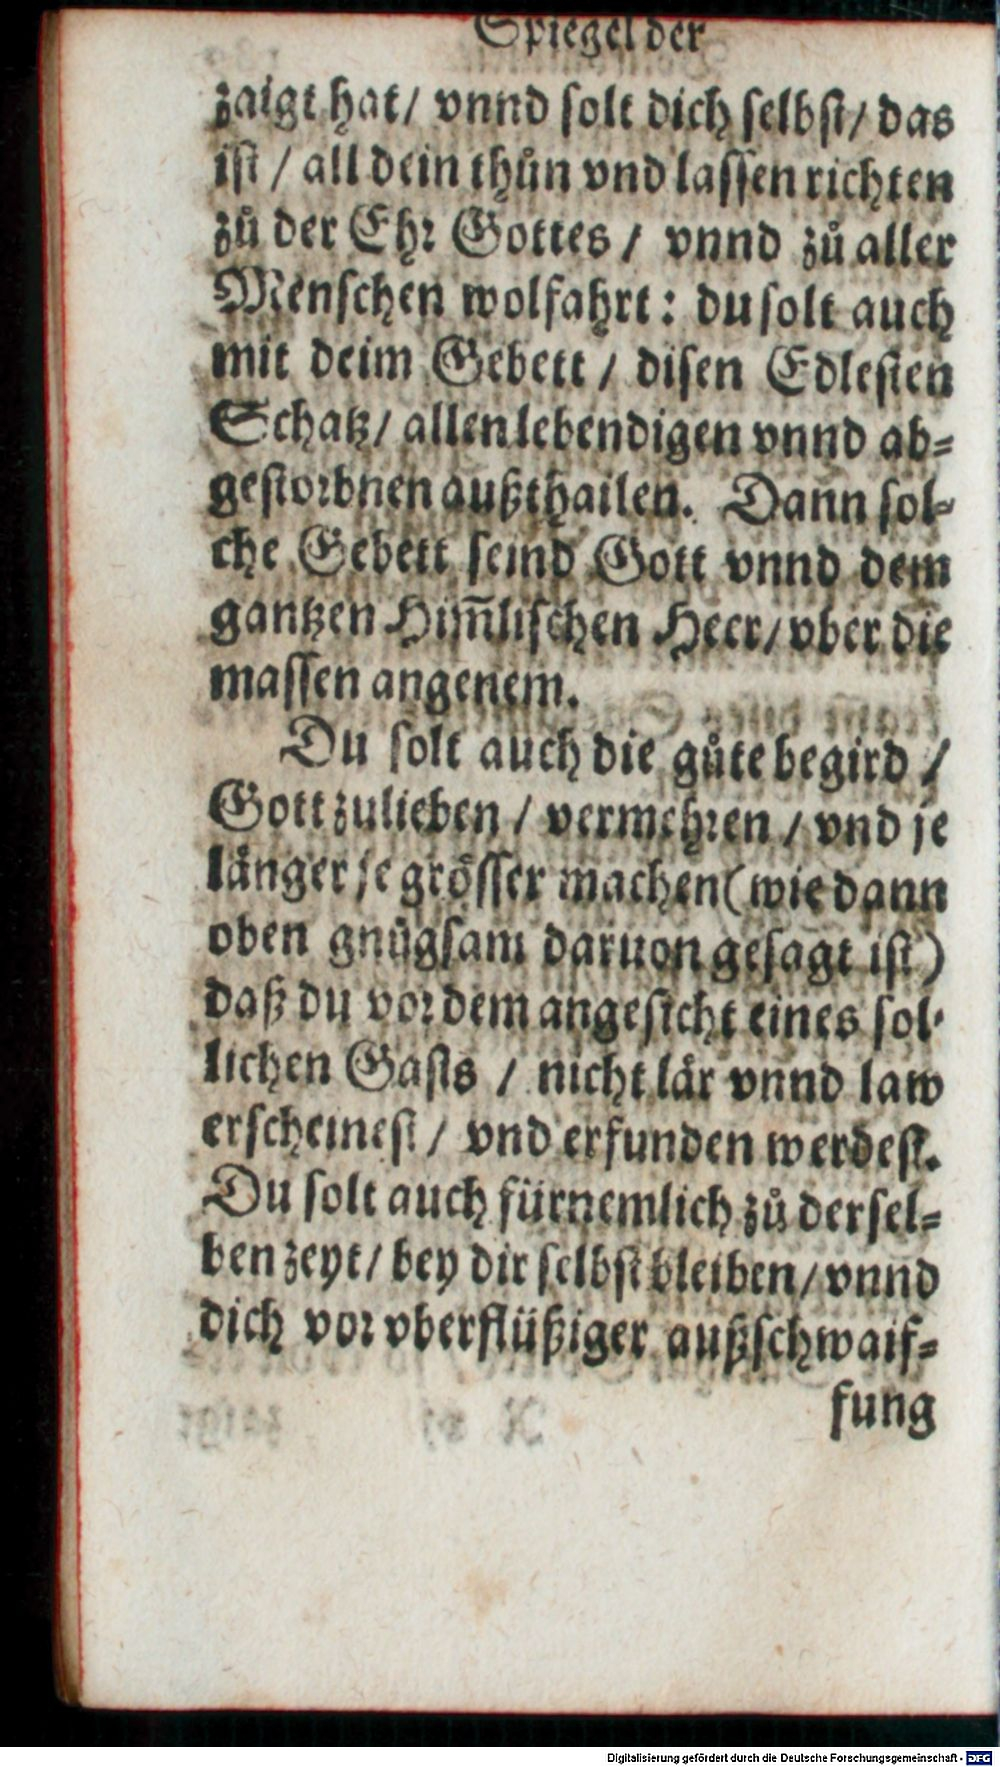 Spiegel der
zaigt hat/ vnnd solt dich selbst/ das
ist / all dein thůn vnd lassen richten
zů der Ehr Gottes / vnnd zů aller
Menschen wolfahrt: du solt auch
mit deim Gebett / disen Edlesten
Schatz/ allen lebendigen vnnd ab-
gestorbnen außthailen. Dann sol-
che Gebett seind Gott vnnd dem
gantzen Him̃lischen Heer/ vber die
massen angenem.
Du solt auch die gůte begird /
Gott zulieben / vermehren / vnd je
länger je grösser machen (wie dann
oben gnůgsam daruon gesagt ist)
daß du vor dem angesicht eines sol-
lichen Gasts / nicht lär vnnd law
erscheinest / vnd erfunden werdest.
Du solt auch fürnemlich zů dersel-
ben zeyt/ bey dir selbst bleiben/ vnnd
dich vor vberflüßiger außschwaif-
fung
Digitalisierung gefördert durch die Deutsche Forschungsgemeinschaft - DFG